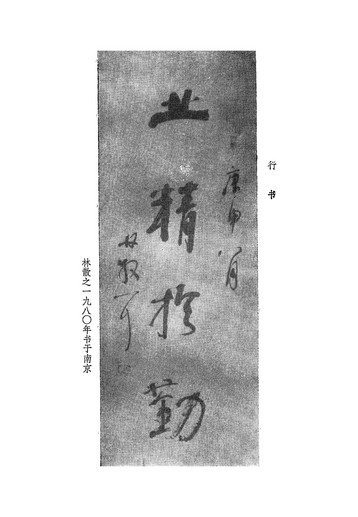 行书
庚申八月
业精於勤
林散耳
林散之一九八〇年书于南京